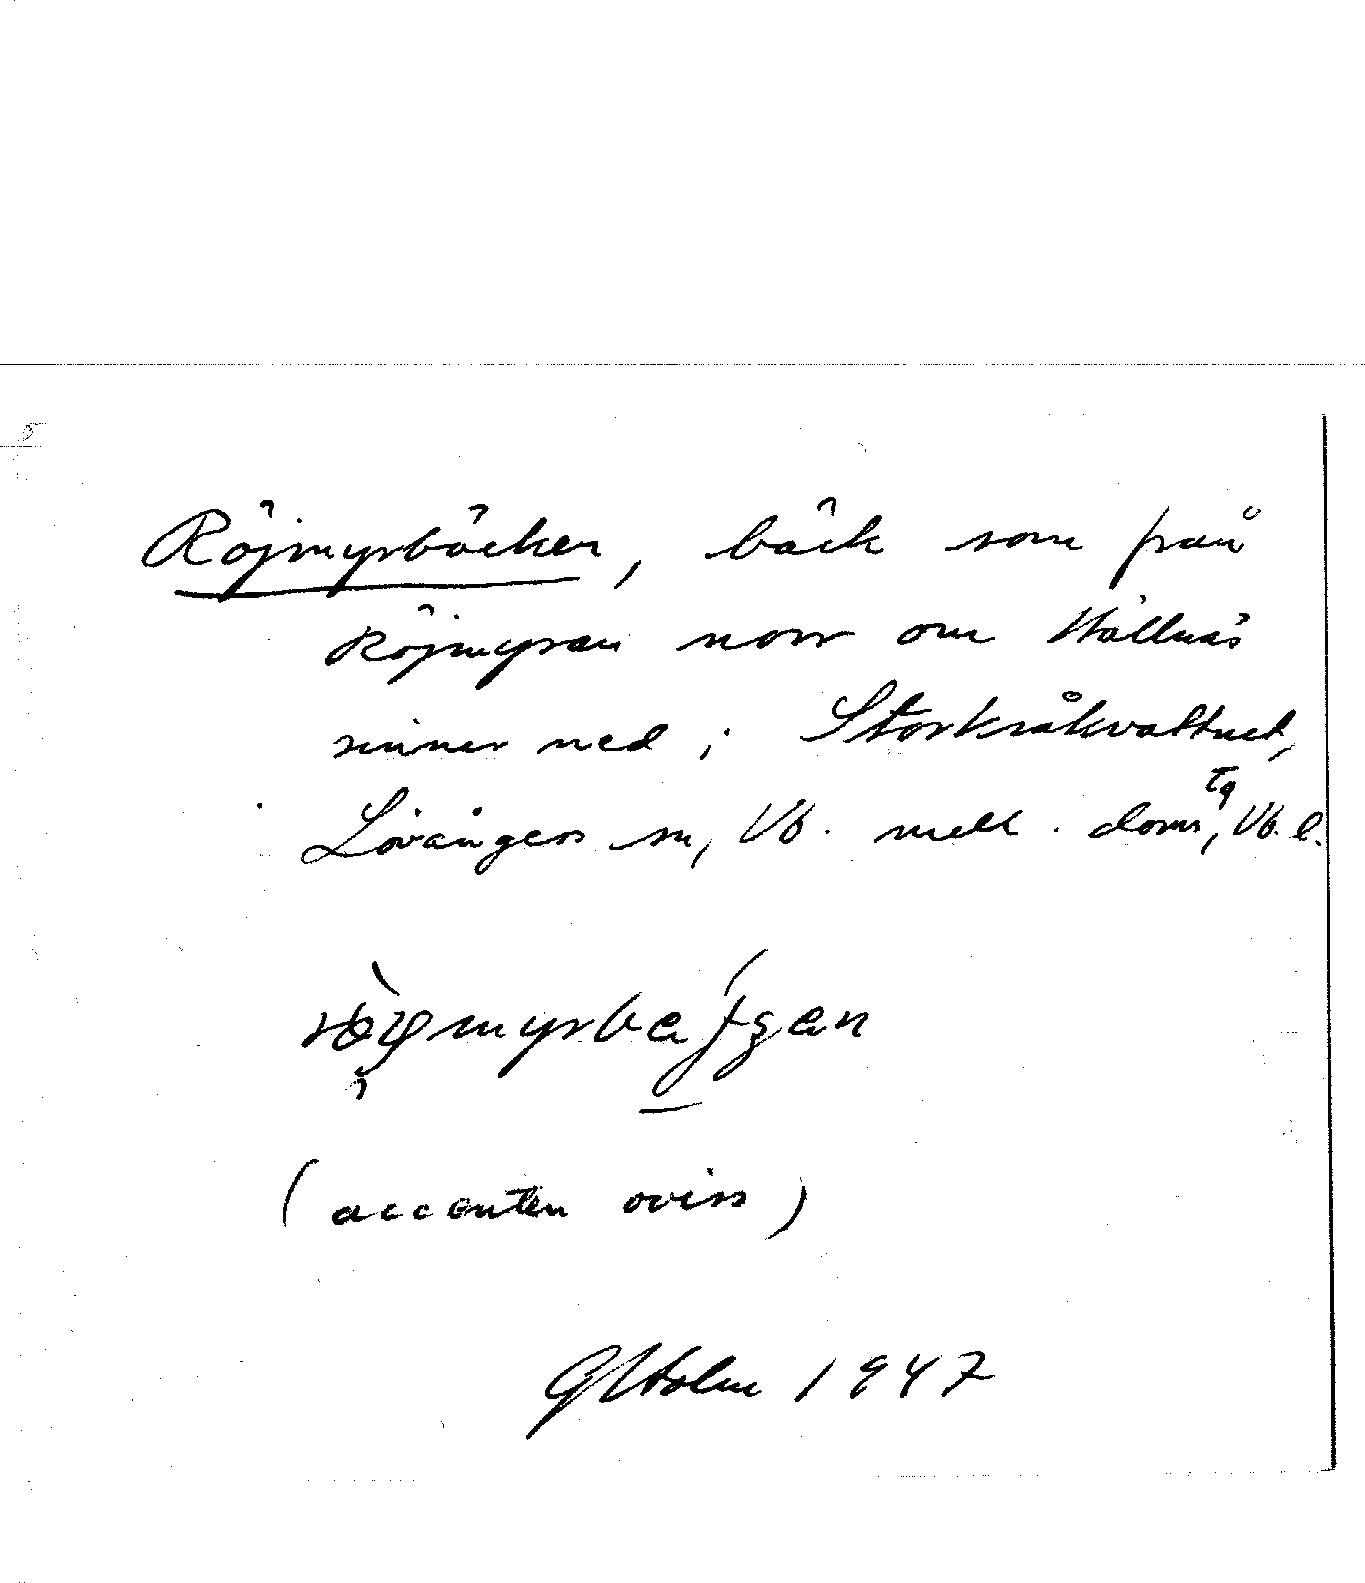 Röjmyrbäcken, bäck som från
Röjmyran norr om Hällnäs
rinner ned i Storkråkvattnet,
Lövångers sn, Vb. mell. doms
tg, Vb. l.
(accenten oviss)
G Holm 1947